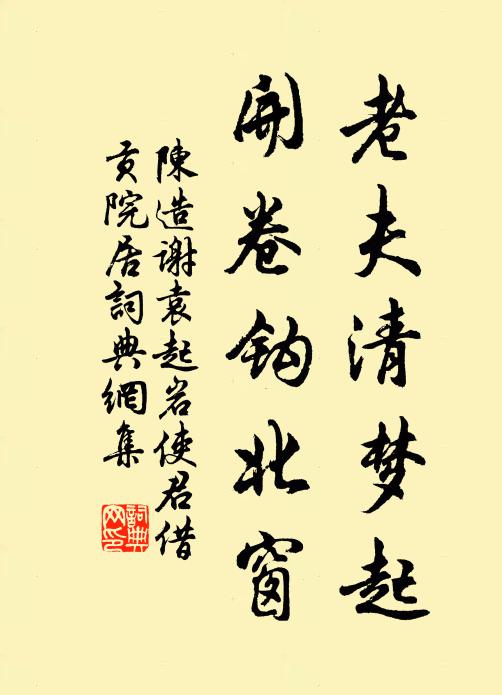 老夫清梦起
開卷鈎北窗
陳造谢袁起岩使君借
贡院居詞典網集
詞典
网印